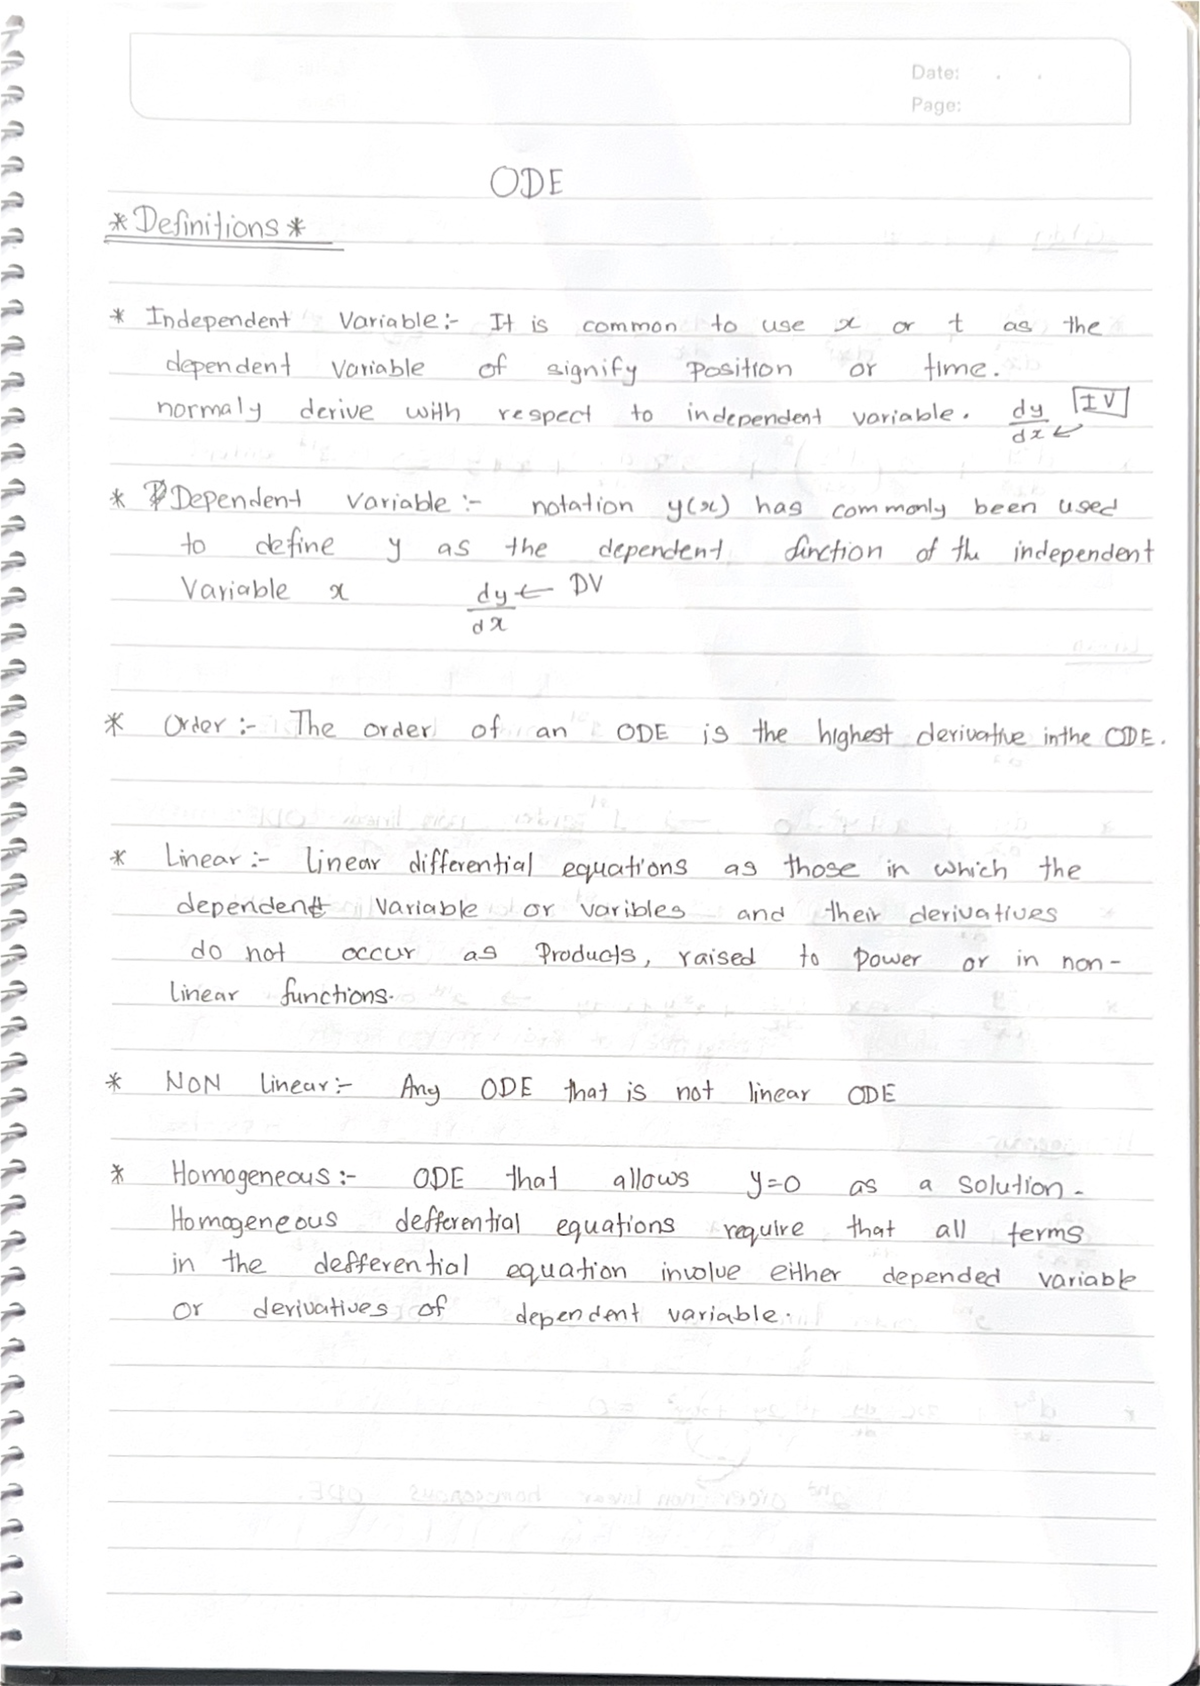 Date: . .
Page:
ODE
* Definitions *
* Independent Variable:- It is common to use x or t as the
dependent variable of signify position or time.
normaly derive with respect to independent variable. dy/dx ← IV
* Dependent variable :- notation y(x) has commonly been used
to define y as the dependent function of the independent
Variable x dy/dx ← DV
* Order :- The order of an ODE is the highest derivative in the ODE.
* Linear :- linear differential equations as those in which the
dependent variable or varibles and their derivatives
do not occur as Products, raised to power or in non-
linear functions.
* NON linear :- Any ODE that is not linear ODE
* Homogeneous :- ODE that allows y=0 as a solution.
Homogeneous defferential equations require that all terms
in the defferential equation involve either depended variable
or derivatives of dependent variable.